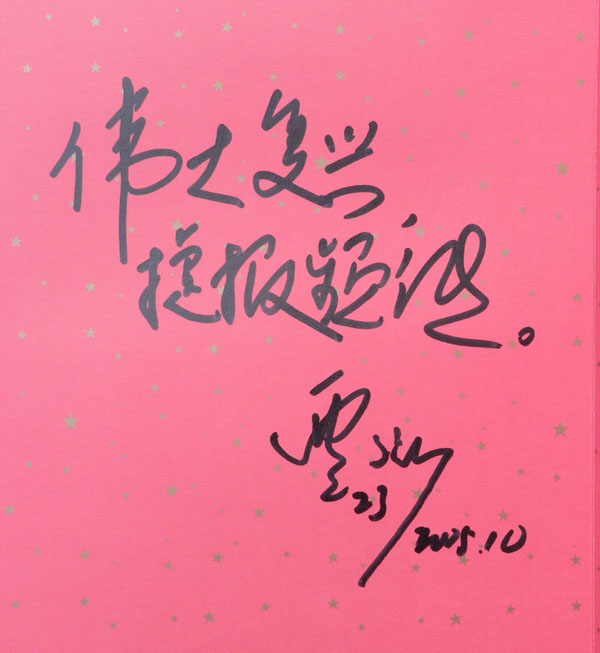 伟大复兴
捷报频传。
23
2005.10